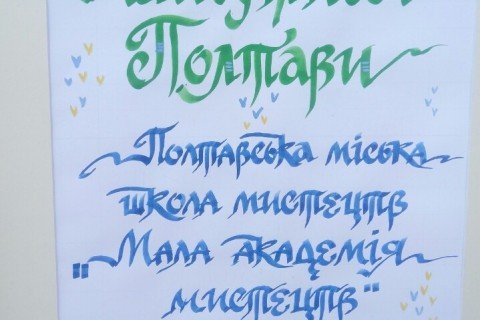 Полтави
Полтавська міська
школа мистецтв
"Мала академія
мистецтв"